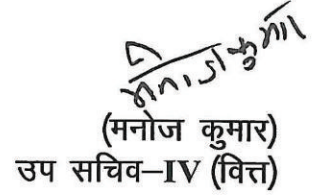 मनोज कुमार
(मनोज कुमार)
उप सचिव–IV (वित्त)